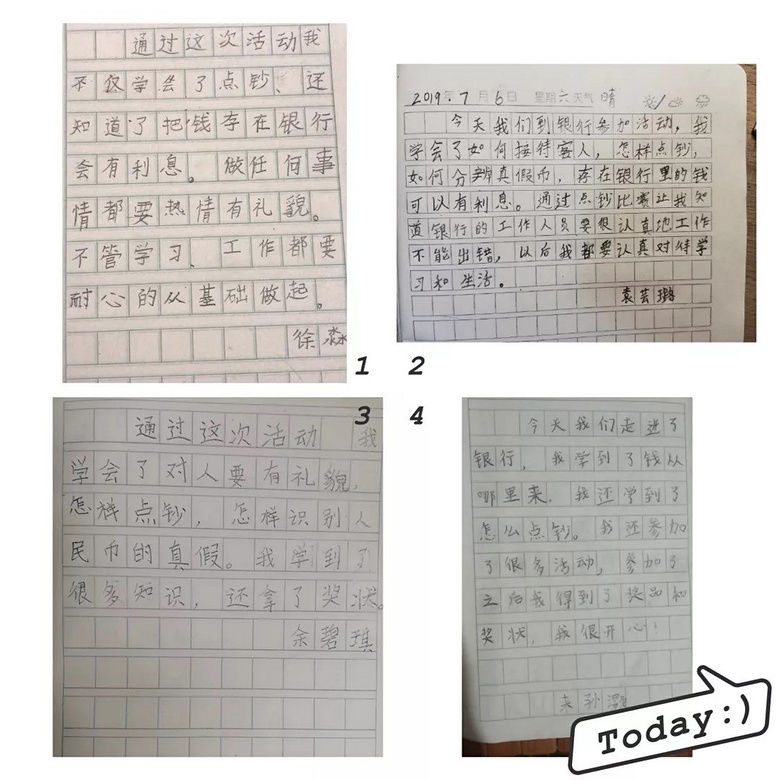 通过这次活动我
不仅学会了点钞、还
知道了把钱存在银行
会有利息。做任何事
情都要热情有礼貌。
不管学习、工作都要
耐心的从基础做起。
徐淼
1
2
2019年7月6日 星期六天气晴
今天我们到银行参加活动,我
学会了如何接待客人,怎样点钞,
如何分辨真假币,存在银行里的钱
可以有利息。通过点钞比赛让我知
道银行的工作人员要很认真地工作
不能出错,以后我都要认真对待学
习和生活。
袁芸璐
3
4
通过这次活动 我
学会了对人要有礼貌,
怎样点钞,怎样识别人
民币的真假。我学到了
很多知识,还拿了奖状。
余碧琪
今天我们走进了
银行,我学到了钱从
哪里来.我还学到了
怎么点钞。我还参加
了很多活动,参加了
之后我得到了奖品和
奖状,我很开心!
Today:)